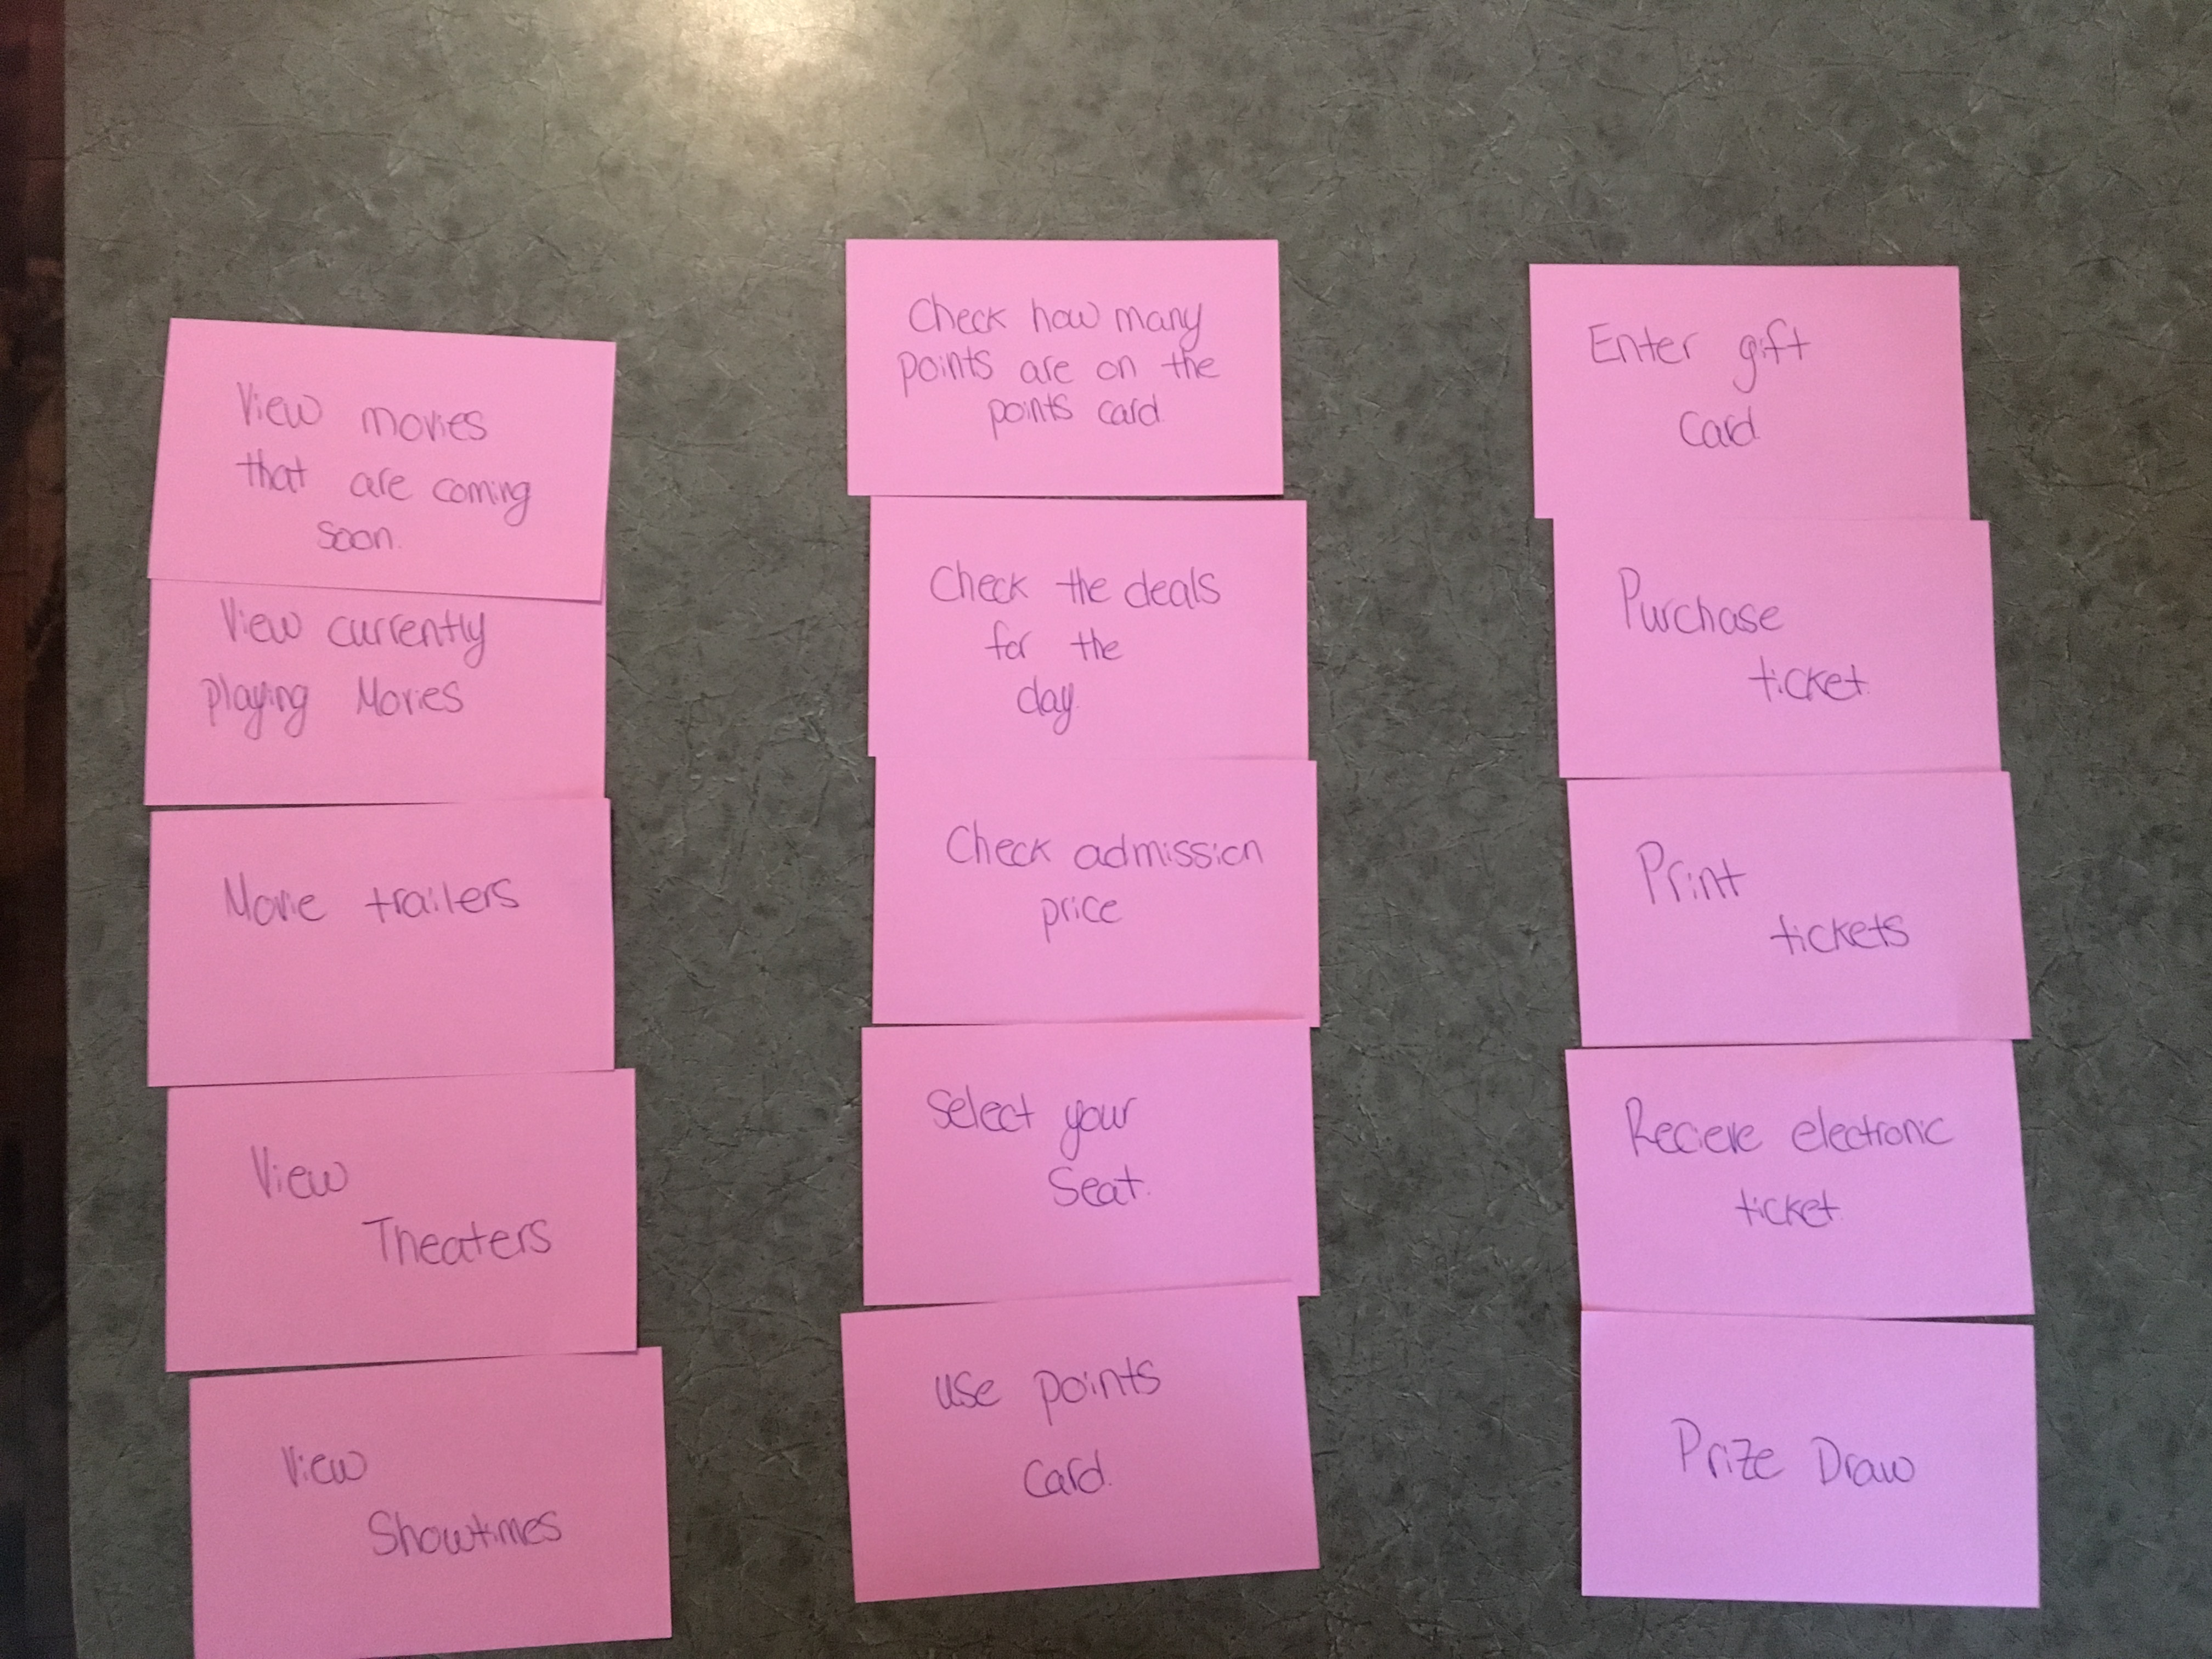 View movies
that are coming
soon.
View currently
playing Movies
Movie trailers
View
Theaters
View
Showtimes
Check how many
points are on the
points card.
Check the deals
for the
day.
Check admission
price
Select your
Seat.
use points
Card.
Enter gift
Card.
Purchase
ticket.
Print
tickets
Recieve electronic
ticket.
Prize Draw